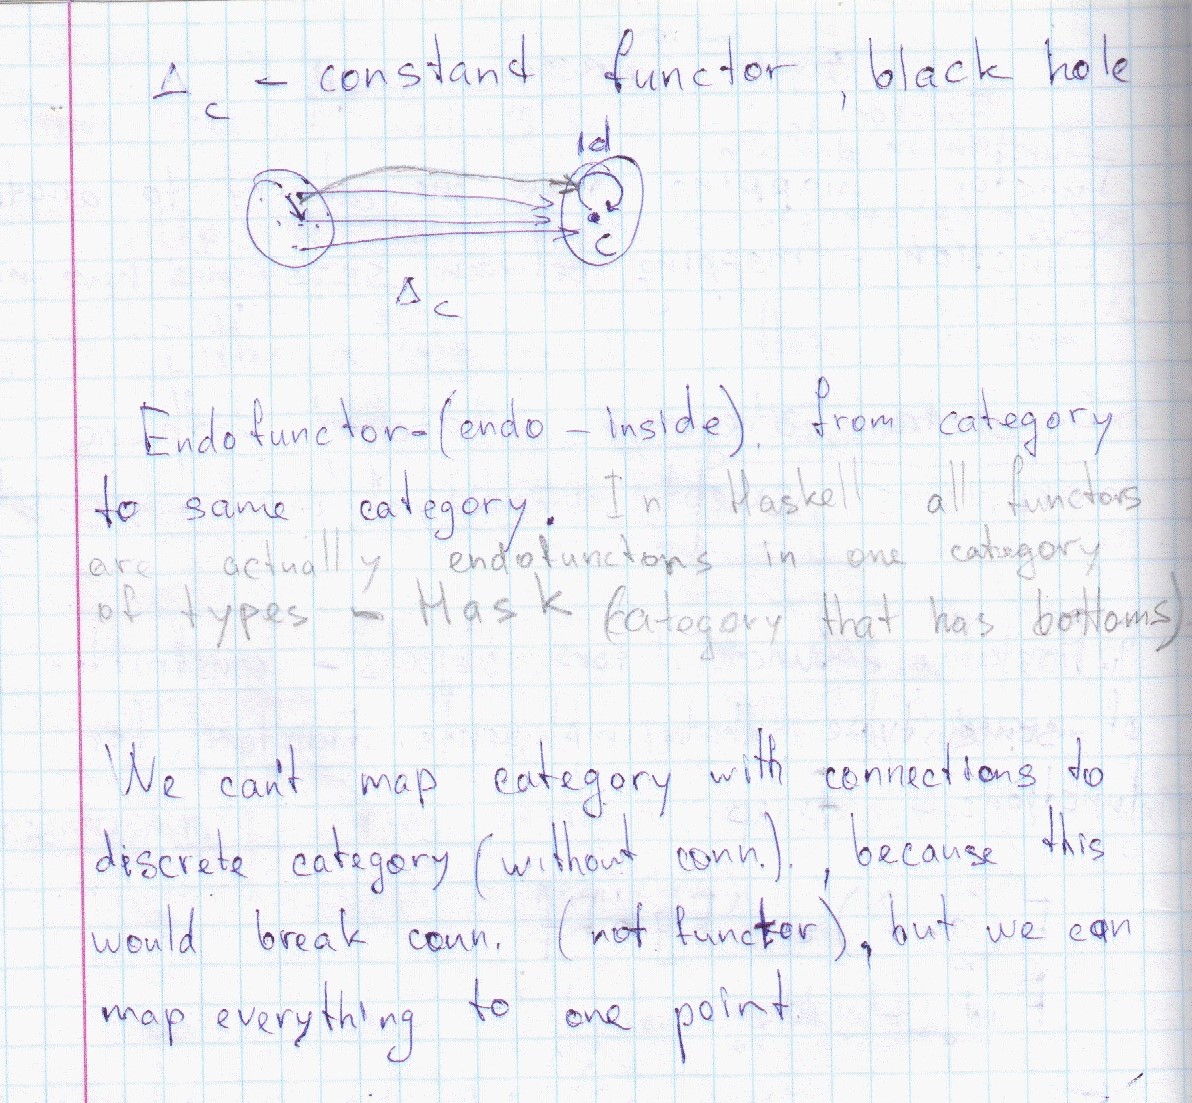 Δc – constand functor, black hole
id
c
Δc
Endofunctor-(endo – inside). from category
to same category. In Haskell all functors
are actually endofunctons in one category
of types – Hask (category that has bottoms)
We can't map category with connections to
discrete category (without conn.), because this
would break conn. (not functor), but we can
map everything to one point.